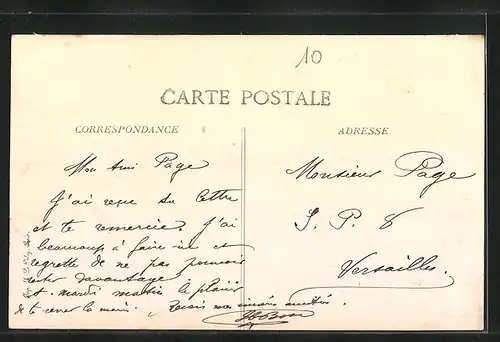 10
CARTE POSTALE
CORRESPONDANCE
ADRESSE
Mon Ami Page
J'ai reçu ta lettre
et te remercie, J'ai
beaucoup à faire ici et
regrette de ne pas pouvoir
rester davantage.
A mardi matin le plaisir
de te serrer la main. Reçois mes sincères amitiés.
Monsieur Page
S. P. 8
Versailles.